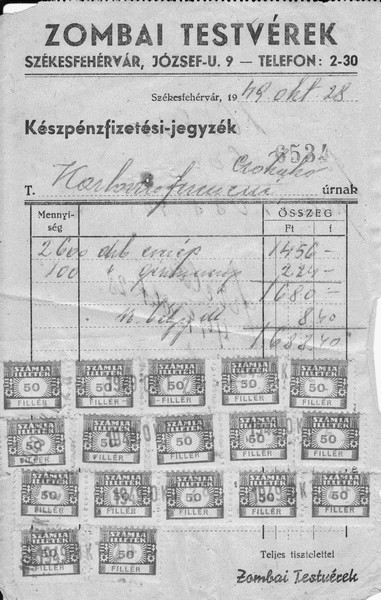 ZOMBAI TESTVÉREK
SZÉKESFEHÉRVÁR, JÓZSEF-U. 9 — TELEFON: 2-30
Székesfehérvár, 1949 okt 28
Készpénzfizetési-jegyzék
6534
T. úrnak
Mennyiség ÖSSZEG
Ft f
2600 drb cserép 1456 —
100 " 224 —
1680 —
8.40
1688.40
SZÁMLA ILLETÉK 50 FILLÉR SZÁMLA ILLETÉK 50 FILLÉR SZÁMLA ILLETÉK 50 FILLÉR SZÁMLA ILLETÉK 50 FILLÉR SZÁMLA ILLETÉK 50 FILLÉR
SZÁMLA ILLETÉK 50 FILLÉR SZÁMLA ILLETÉK 50 FILLÉR SZÁMLA ILLETÉK 50 FILLÉR SZÁMLA ILLETÉK 50 FILLÉR SZÁMLA ILLETÉK 50 FILLÉR
SZÁMLA ILLETÉK 50 FILLÉR SZÁMLA ILLETÉK 50 FILLÉR SZÁMLA ILLETÉK 50 FILLÉR SZÁMLA ILLETÉK 50 FILLÉR SZÁMLA ILLETÉK 50 FILLÉR
SZÁMLA ILLETÉK 50 FILLÉR SZÁMLA ILLETÉK 50 FILLÉR
Teljes tisztelettel
Zombai Testvérek